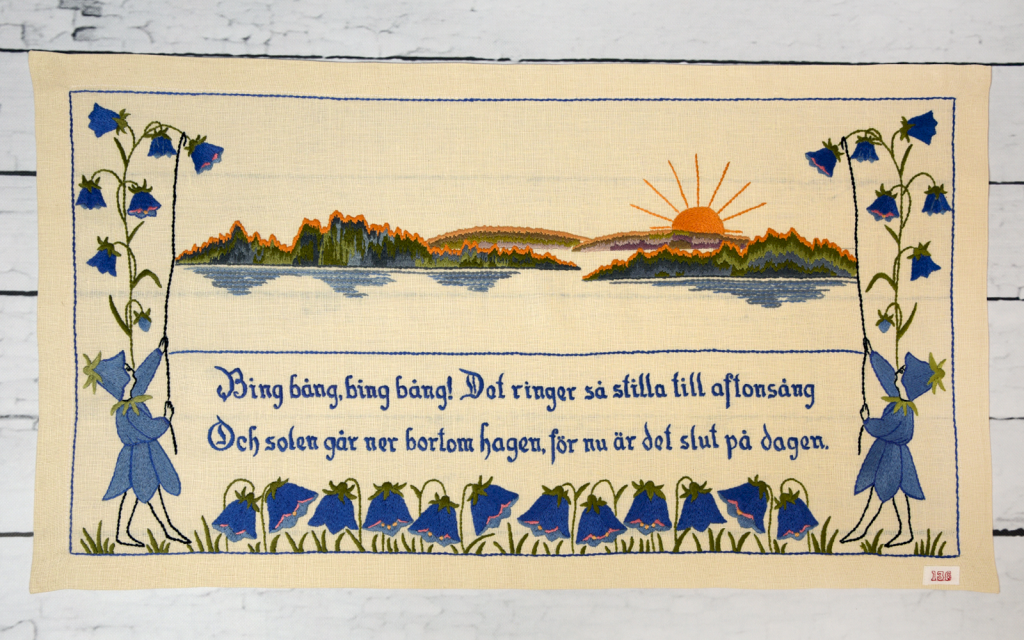 Bing bång, bing bång! Det ringer så stilla till aftonsång
Och solen går ner bortom hagen, för nu är det slut på dagen.
136